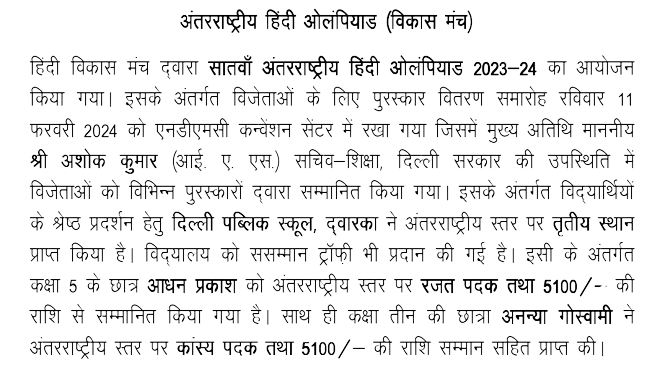 अंतरराष्ट्रीय हिंदी ओलंपियाड (विकास मंच)
हिंदी विकास मंच द्वारा सातवाँ अंतरराष्ट्रीय हिंदी ओलंपियाड 2023–24 का आयोजन
किया गया। इसके अंतर्गत विजेताओं के लिए पुरस्कार वितरण समारोह रविवार 11
फरवरी 2024 को एनडीएमसी कन्वेंशन सेंटर में रखा गया जिसमें मुख्य अतिथि माननीय
श्री अशोक कुमार (आई. ए. एस.) सचिव–शिक्षा, दिल्ली सरकार की उपस्थिति में
विजेताओं को विभिन्न पुरस्कारों द्वारा सम्मानित किया गया। इसके अंतर्गत विद्यार्थियों
के श्रेष्ठ प्रदर्शन हेतु दिल्ली पब्लिक स्कूल, द्वारका ने अंतरराष्ट्रीय स्तर पर तृतीय स्थान
प्राप्त किया है। विद्यालय को ससम्मान ट्रॉफ़ी भी प्रदान की गई है। इसी के अंतर्गत
कक्षा 5 के छात्र आधन प्रकाश को अंतरराष्ट्रीय स्तर पर रजत पदक तथा 5100/- की
राशि से सम्मानित किया गया है। साथ ही कक्षा तीन की छात्रा अनन्या गोस्वामी ने
अंतरराष्ट्रीय स्तर पर कांस्य पदक तथा 5100/– की राशि सम्मान सहित प्राप्त की।